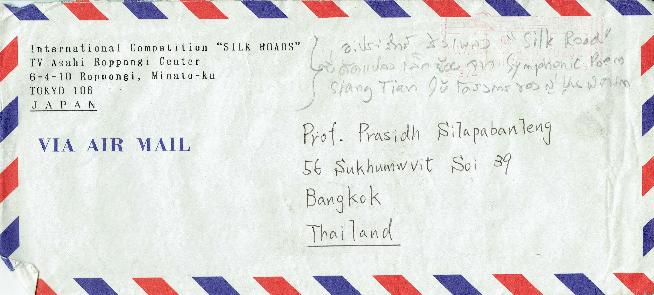 International Competition "SILK ROADS"
TV Asahi Roppongi Center
6-4-10 Roppongi, Minato-ku
TOKYO 106
JAPAN
VIA AIR MAIL
อ.ประสิทธิ์ "Silk Road"
จาก Symphonic Poem
Siang Tian
Prof. Prasidh Silapabanleng
56 Sukhumwvit Soi 39
Bangkok
Thailand